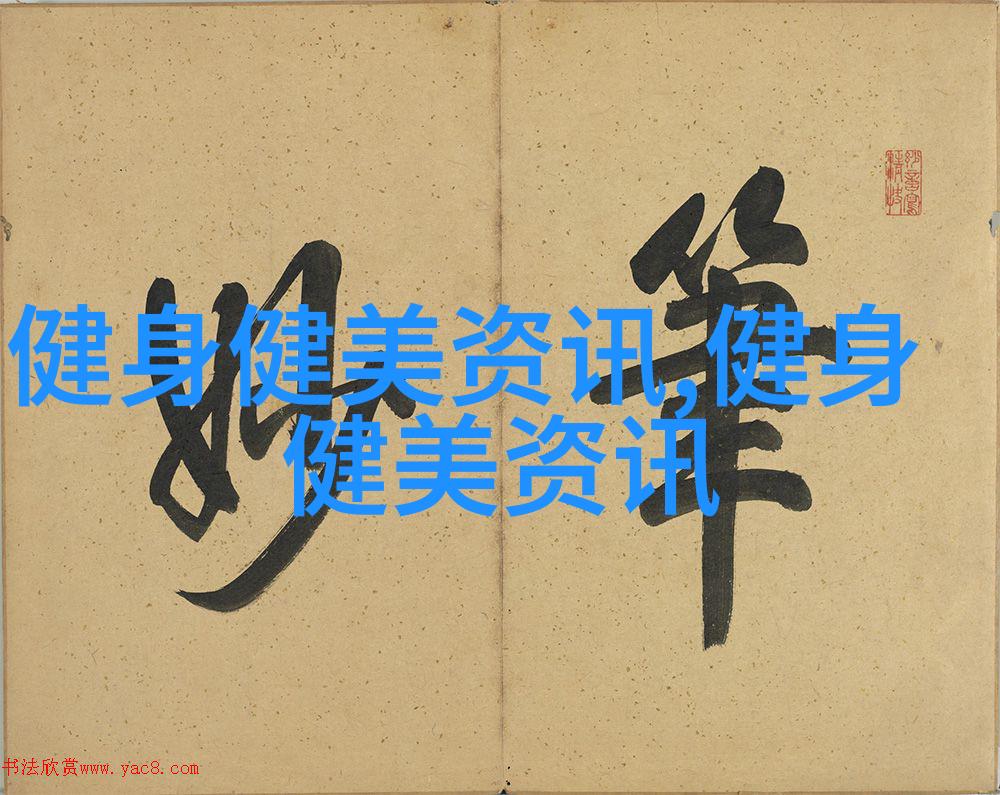 筆妙
健身健美资讯,健身
健美资讯
书法欣赏www.yac8.com